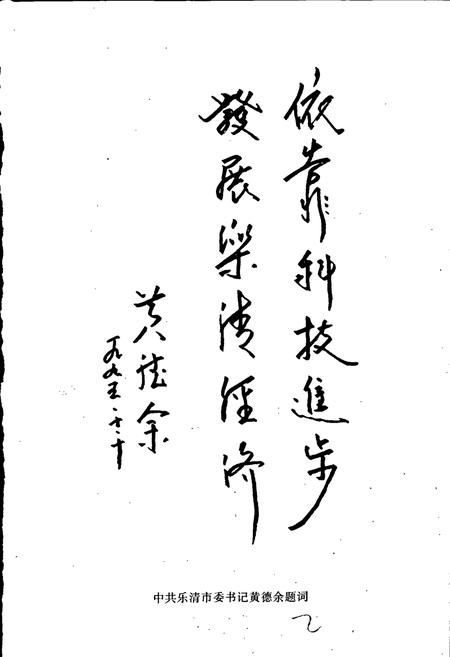 依靠科技進步
發展樂清經濟
黄德余
一九九五.十二.十
中共乐清市委书记黄德余题词